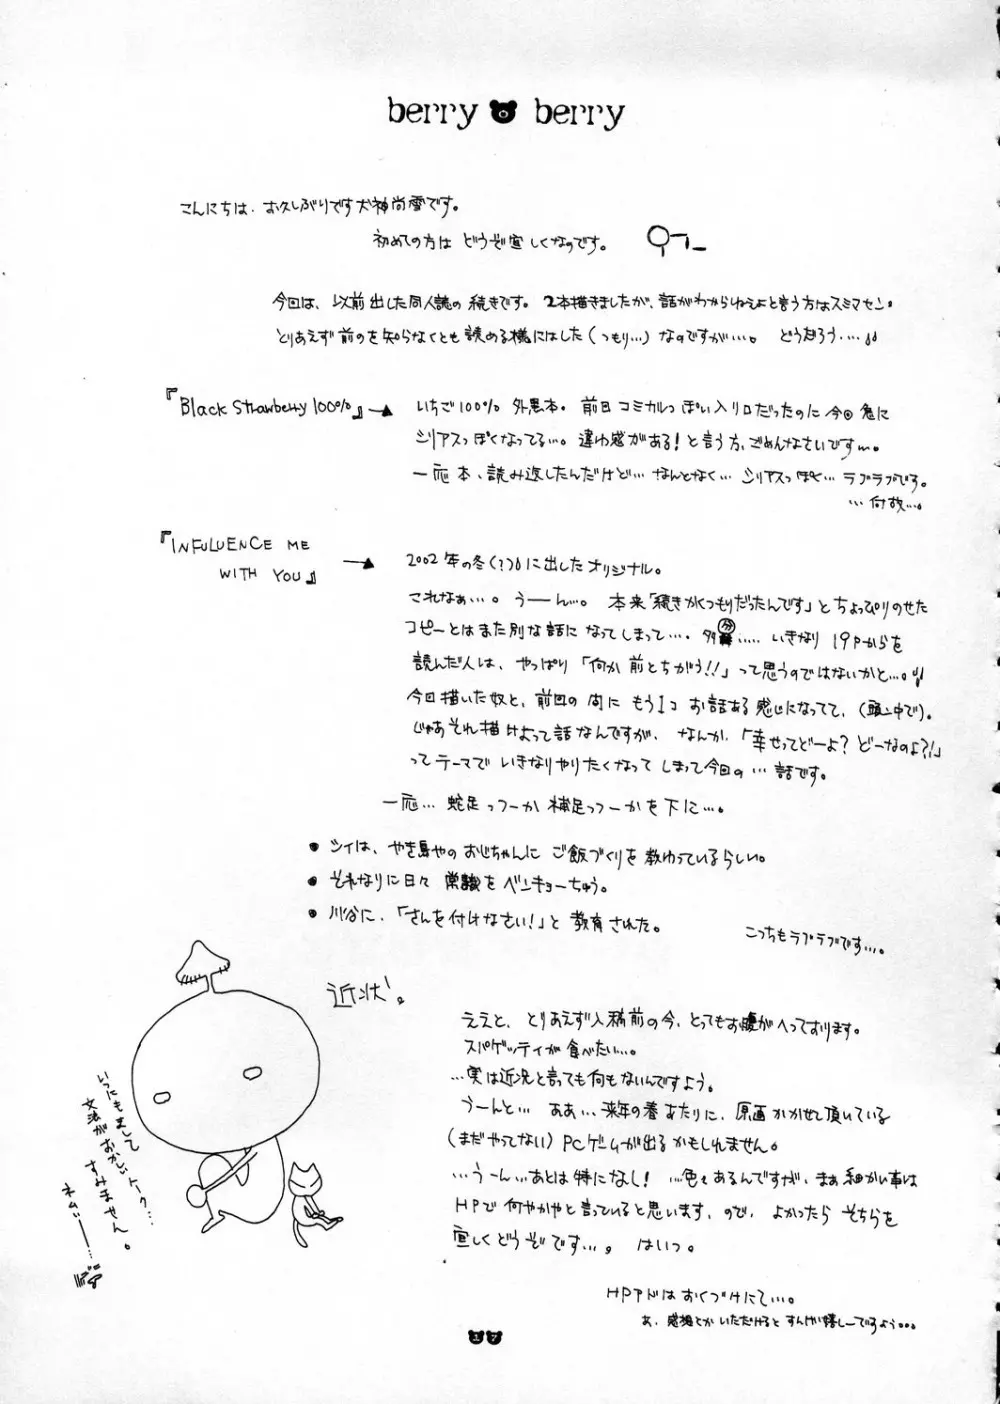 berry berry
こんにちは、お久しぶりです犬神尚雪です。
初めての方は どうぞ宜しくなのです。
今回は、以前出した同人誌の続きです。2本描きましたが、話がわからねぇよと言う方はスミマセン。
とりあえず前のを知らなくとも読める様にはした(つもり…)なのですが…。どうだろう….
『Black Strawberry 100%』→
いちご100% 外黒本。前回コミカルっぽい入り口だったのに今回急に
シリアスっぽくなってるし…。違わ感がある!と言う方、ごめんなさいです…。
一応本、読み返したんだけど… なんとなく… シリアスっぽく… ラブラブです。
…何故…。
『INFULUENCE ME
WITH YOU』→
2002年の冬(?)に出したオリジナル。
これなぁ…。うーん…。本来「続きがくつもりだったんです」とちょっぴりのせた
コピーとはまた別な話になってしまって…. 多分….. いきなり19Pからを
読んだ人は、やっぱり「何か前とちがう!!」って思うのではないかと…。
今回描いた奴と、前回の間にもう1コ お話ある感じになってて、(頭ン中で)。
じゃあそれ描けよって話なんですが、なんか、「幸せってどーよ? どーなのよ?!」
ってテーマで いきなりやりたくなって しまって今回の…話です。
一応… 蛇足っつーか補足っつーかを下に…。
• シィは、やき鳥やのおじちゃんに ご飯づくりを教わっているらしい。
• それなりに日々 常識を ベンキョーちゅう。
• 川谷に、「さんを付けなさい!」と 教育された。
こっちもラブラブです…。
近状。
ええと、とりあえず入稿前の今、とってもお腹がへっております。
スパゲッティが食べたい…。
…実は近況と言っても何もないんですよう。
うーんと… ああ…来年の春あたりに、原画かかせて頂いている
(まだやってない) PCゲームが出るかもしれません。
…うーん…あとは特になし! …色々あるんですが、まぁ細かい事は
HPで何やかやと言っていると思います、ので、よかったら そちらを
宜しくどうぞです…。はいっ。
HPアドはおくづけにて…。
あ、感想とかいただけると すんげい嬉しーですよう。。。
いつにもまして
文法がおかしいトーク…
すみません。
ネムいー…
17